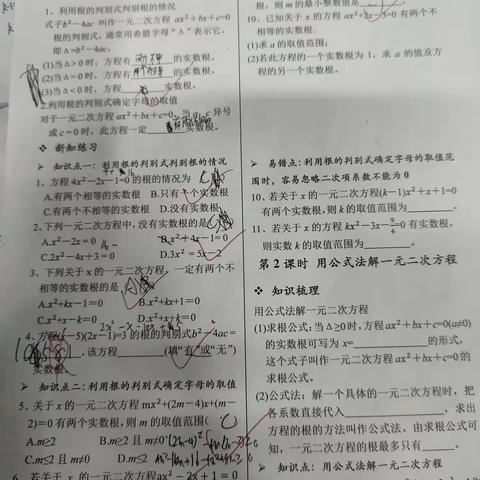 1、利用根的判别式判别根的情况
式子b²-4ac 叫作一元二次方程 ax²+bx+c=0
根的判别式,通常用希腊字母“Δ”表示它,
即Δ=b²-4ac.
(1)当Δ>0 时,方程有 的实数根.
(2)当Δ=0 时,方程有 的实数根.
(3)当Δ<0 时,方程 实数根.
2.利用根的判别式确定字母的取值
对于一元二次方程 ax²+bx+c=0,当 a、c 异号
或 c=0 时,此方程一定 实数根.
❖ 新知练习
➢ 知识点一:利用根的判别式判别根的情况
1、方程 4x²-2x-1=0 的根的情况为 C
A.有两个相等的实数根 B.只有一个实数根
C.有两个不相等的实数根 D.没有实数根
2、下列一元二次方程中,没有实数根的是
A.x²-2x=0 B.x²+4x-1=0
C.2x²-4x+3=0 D.3x²=5x-2
3、下列关于 x 的一元二次方程,一定有两个不
相等的实数根的是
A.x²+kx-1=0 B.x²+kx+1=0
C.x²+x-k=0 D.x²+x+k=0
4、方程(x-5)(2x-1)=3 的根的判别式 b²-4ac=
,该方程 (填“有”或“无”)
实数根.
➢ 知识点二:利用根的判别式确定字母的取值
5、关于 x 的一元二次方程 mx²+(2m-4)x+(m-
2)=0 有两个实数根,则 m 的取值范围( C
A.m≥2 B.m≥2 且 m≠0
C.m≤2 且 m≠0 D.m≤2
6、若关于 x 的一元二次方程 x²-2x+1=0
根,则 m 的最小整数值是
10、已知关于 x 的方程 有两个不
相等的实数根.
(1)求 a 的取值范围;
(2)若此方程的一个实数根为 1,求 a 的值及方
程的另一个实数根.
➢ 易错点:利用根的判别式确定字母的取值范
围时,容易忽略二次项系数不能为 0
10、若关于 x 的一元二次方程(k-1)x²+x+1=0
有两个实数根,则 k 的取值范围为 .
11、若关于 x 的方程 kx²-3x-9/4=0 有实数根,
则实数 k 的取值范围为 .
第 2 课时 用公式法解一元二次方程
❖ 知识梳理
用公式法解一元二次方程
(1)求根公式:当Δ≥0 时,方程 ax²+bx+c=0(a≠0)
的实数根可写为 x= 的形式,
这个式子叫作一元二次方程 ax²+bx+c=0 的
求根公式.
(2)公式法:解一个具体的一元二次方程时,把
各系数直接代入 ,求出
方程的根的方法叫作公式法。由求根公式可
知,一元二次方程的根最多只有 .
➢ 知识点:用公式法解一元二次方程